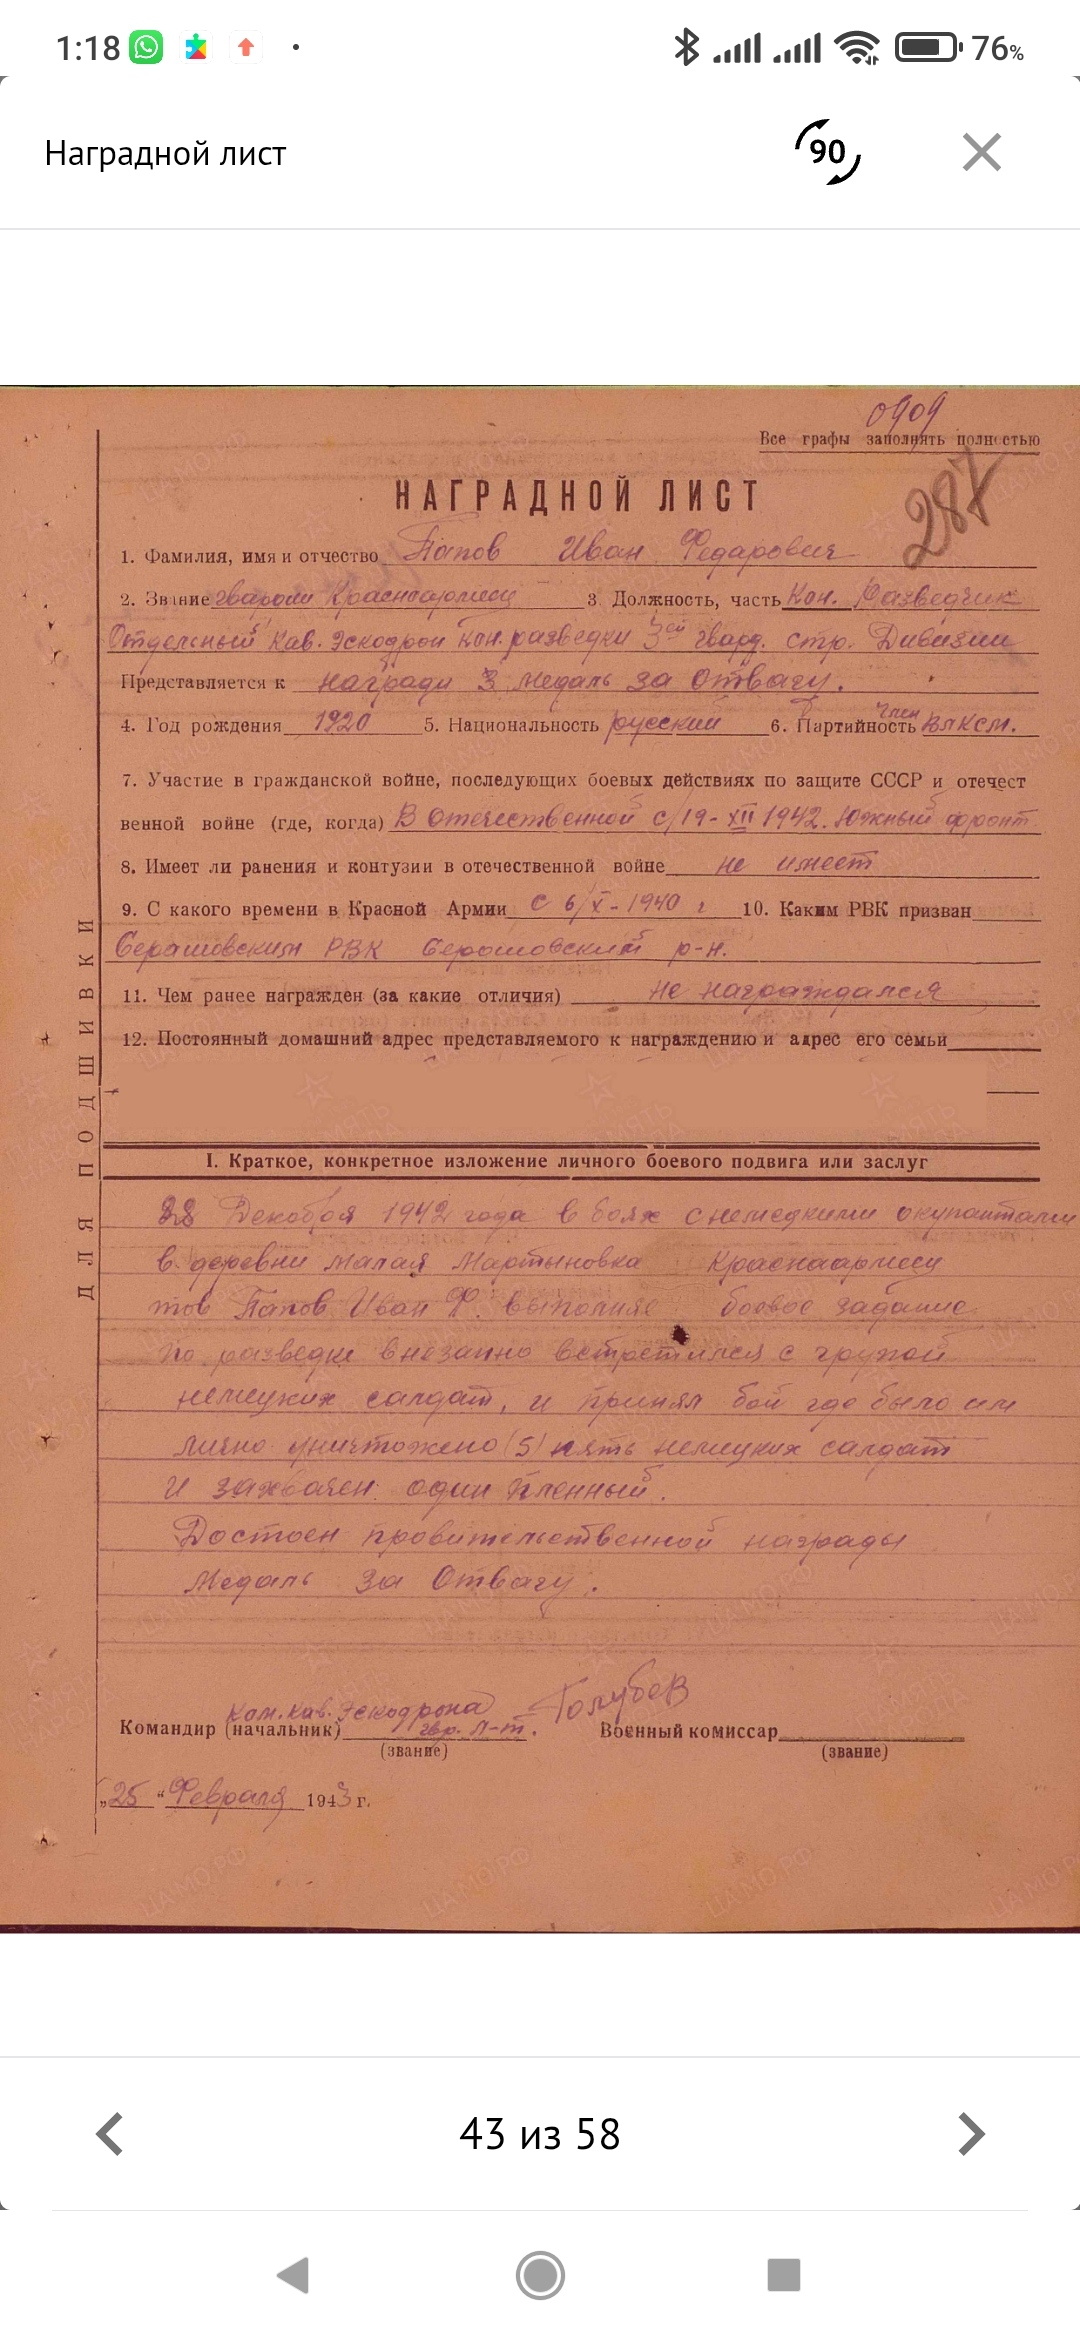 1:18
76%
Наградной лист
90
0909
Все графы заполнять полностью
287
НАГРАДНОЙ ЛИСТ
1. Фамилия, имя и отчество Папов Иван Федарович
2. Звание гвардии Красноармеец 3. Должность, часть Кон. Разведчик
Отдельный Кав. Эскодрон Кон. разведки 3ей гвард. стр. Дивизии
Представляется к награди медаль за Отвагу.
4. Год рождения 1920 5. Национальность русский 6. Партийность член ВЛКСМ.
7. Участие в гражданской войне, последующих боевых действиях по защите СССР и отечест
венной войне (где, когда) В Отечественной с 19-XII 1942. Южный фронт
8. Имеет ли ранения и контузии в отечественной войне не имеет
9. С какого времени в Красной Армии с 6/X-1940 г 10. Каким РВК призван
РВК р-н.
11. Чем ранее награжден (за какие отличия) не награждался
12. Постоянный домашний адрес представляемого к награждению и адрес его семьи
ДЛЯ ПОДШИВКИ
I. Краткое, конкретное изложение личного боевого подвига или заслуг
Декабря 1942 года в боях с немецкими
в деревни малая Мартыновка Красноармеец
тов Папов Иван Ф. выполняя боевое задание
по разведки внезапно встретился с групой
немецких салдат, и принял бой где было им
лично уничтожено (5) пять немецких салдат
и захвачен один пленный.
Достоен провительственной награды
медаль за Отвагу.
Ком. Кав. Эскодрона Голубев
Командир (начальник) гвр. Л-т. Военный комиссар
(звание) (звание)
„25“ Февраля 1943 г.
43 из 58